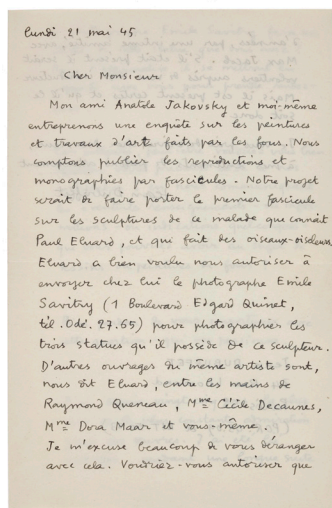 lundi 21 mai 45
Cher Monsieur
Mon ami Anatole Jakovsky et moi-même
entreprenons une enquête sur les peintures
et travaux d'art faits par les fous. Nous
comptons publier les reproductions et
monographies par fascicules. Notre projet
serait de faire porter le premier fascicule
sur les sculptures de ce malade que connaît
Paul Eluard, et qui fait des oiseaux-oiseleurs
Eluard a bien voulu nous autoriser à
envoyer chez lui le photographe Emile
Savitry (1 Boulevard Edgard Quinet,
tél. Odé. 27.65) pour photographier les
trois statues qu'il possède de ce sculpteur.
D'autres ouvrages du même artiste sont,
nous dit Eluard, entre les mains de
Raymond Queneau, Mme Cécile Decaunes,
Mme Dora Maar et vous-même.
Je m'excuse beaucoup de vous déranger
avec cela. Voudriez-vous autoriser que